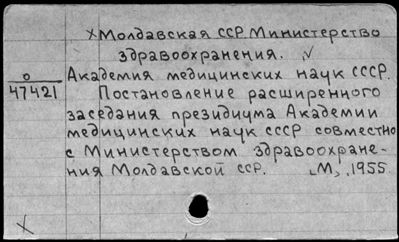 ×Молдавская ССР. Министерство
здравоохранения. √
о
47421
Академия медицинских наук СССР.
Постановление расширенного
заседания президиума Академии
медицинских наук СССР совместно
с Министерством здравоохране-
ния Молдавской ССР. М., 1955.
×